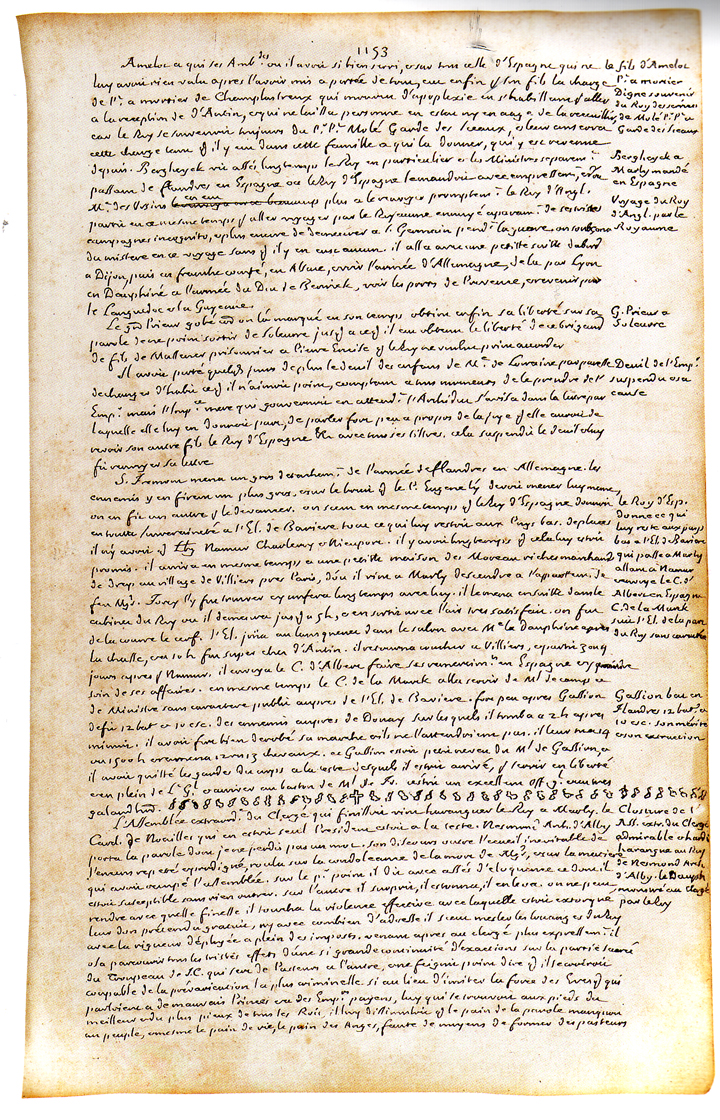 1153
Amelot a qui ses Amb.des ou il avoit si bien servi, et sur tout celle d'Espagne qui ne
luy avoit rien valu apres l'avoir mis a portée de tout, eut enfin p.r son fils la charge
de P.t a mortier de Champlastreux qui mourut d'apoplexie en s'habillant p.r aller
a la reception de d'Antin, et qui ne laissa personne en estat ny en aage de la recueillir,
car le Roy se souvenoit tousjours du P.r P.t Molé Garde des Sceaux, et leur conserva
cette charge tant q.l y eut dans cette famille a qui la donner, qui y est revenue
depuis. Bergheyck vit assés longtemps le Roy en particulier et les Ministres separem.t
passant de flandres en Espagne ou le Roy d'Espagne le mandoit avec empressem.t, et
M.e des Ursins plus a le renvoyer promptem.t. le Roy d'Angl.
partit en ce mesme temps p.r aller voyager par le Royaume ennuyé apparem.t de ses tristes
campagnes incognito, et plus encore de demeurer a S. Germain pend.t la guerre. on soubçonna
du mistere en ce voyage sans q.l y en eust aucun. il alla avec une petite suitte d'abord
a Dijon, puis en franche comté, en Alsace, et voir l'armée d'Allemagne, de la par Lyon
en Dauphiné a l'armée du Duc de Berwick, voir les ports de Provence, et revenir par
le Languedoc et la Guyenne.
Le g.d Prieur gobé comme on l'a marqué en son temps obtint enfin sa liberté sur sa
parole de ne point sortir de Soleurre jusq.a ce q.l eut obtenu la liberté de ce brigand
de fils de Massener prisonnier a Pierre Encise q.l le Roy ne voulut point accorder
Il avoit porté quelq.s jours de plus le deuil des enfans de M.r de Lorraine par paresse
de changer d'habit ce q.l il n'aimoit point, comptant a tous moments de le prendre de l'
Emp.r mais l'Imp.ce mere qui gouvernoit en attend.t l'Archiduc s'avisa dans la lettre par
laquelle elle luy en donnoit part, de parler fort peu a propos de la joye q.l elle auroit de
revoir son autre fils le Roy d'Espagne avec tous ses tiltres, cela suspendit le deuil et luy
fit renvoyer sa lettre
S. Fremont mena un gros detachem.t de l'armée de flandres en Allemagne. les
ennemis y en firent un plus gros, et sur le bruit q.l le P.ce Eugene devoit mener luy mesme,
on en fit un autre p.r le devancer. on sceut en mesme temps q.l le Roy d'Espagne donnoit
en toutte souveraineté a l'El. de Baviere tout ce qui luy restoit aux Pays bas. de places
il n'y avoit q.l Lux. Namur Charleroy et Nieuport. il y avoit longtemps q.l cela luy estoit
promis. il arriva en mesme temps a une petitte maison des Moreau riches marchands
de drap au village de Villiers pres Paris, d'ou il vint a Marly descendre a l'appartem.t de
feu Mg.r. Torcy l'y fut trouver et conféra longtemps avec luy. il le mena ensuitte dans le
cabinet du Roy ou il demeura jusq.a 5 h, et en sortit avec l'air tres satisfait. on fut
de la courre le cerf. l'El. joüa au lansquenet dans le salon avec M.e la Dauphine apres
la chasse, et a 10 h fut souper chez d'Antin. il retourna coucher a Villiers, et partit 3 ou 4
jours apres p.r Namur. il envoya le C. d'Albert faire ses remerciem.ts en Espagne et y prendre
soin de ses affaires. en mesme temps le C. de la Marck alla servir de M.al de camp et
de Ministre sans caractere public aupres de l'El. de Baviere. fort peu apres Gassion
defit 12 bat. et 10 esc. des ennemis aupres de Doüay sur lesquels il tomba a 2 h apres
minuit. il avoit fort bien derobé sa marche et ils ne l'attendoient pas. il leur tua 14
ou 1500 h et ramena 12 ou 13 c chevaux. ce Gassion estoit petit neveu du M.al de Gassion, et
il avoit quitté les gardes du corps a la teste desquels il estoit arrivé, p.r servir en liberté
et en plein de L.t G.l et arriver au baston de M.al de Fr. c'estoit un excellent off.r g.l et un tres
galand h.
L'Assemblée extraord.e du Clergé qui finissoit vint haranguer le Roy a Marly. le
Card. de Noailles qui en estoit seul President estoit a la teste. Nesmond Arch. d'Alby
porta la parole dont je ne perdis pas un mot. son discours outre l'ecueil inevitable de
l'encens repeté et prodigué, roula sur la condoleance de la mort de Mg.r, et sur la matiere
qui avoit occupé l'assemblée. sur le p.r point il dit avec assés d'eloquence ce dont il
estoit susceptible sans rien outrer. sur l'autre il surprit, il estonna, il enleva. on ne peut
rendre avec quelle finesse il toucha la violence effective avec laquelle estoit extorqué
leur don pretendu gratuit, ny avec combien d'adresse il sceut mesler les loüanges du Roy
avec la rigueur deployée a plein des imposts. venant apres au clergé plus expressem.t il
osa parcourir tous les tristes effets d'une si grande continuité d'exactions sur la partie sacrée
du Troupeau de J.C. qui sert de Pasteur a l'autre, et ne feignit point dire q.l il se croiroit
coupable de la prevarication la plus criminelle si au lieu d'imiter la force des Evesq. qui
parloient a de mauvais Princes et a des Emp.rs payens, luy qui se trouvoit aux pieds du
meilleur et du plus pieux de tous les Rois, il luy dissimuloit q.l le pain de la parole manquoit
au peuple, et mesme le pain de vie, le pain des Anges, faute de moyens de former des pasteurs
le fils d'Amelot
P.t a mortier
Digne souvenir
du Roy des services
de Molé P.r P.t et
Garde des Sceaux
Bergheyck a
Marly mandé
en Espagne
Voyage du Roy
d'Angl. par le
Royaume
G. Prieur a
Soleurre
Deuil de l'Emp.r
suspendu et sa
cause
le Roy d'Esp.
donne ce qui
luy reste aux pays
bas a l'El. de Baviere
qui passe a Marly
allant a Namur
envoye le C. d'
Albert en Espagne
C. de la Marck
suit l'El. de la part
du Roy sans caractere
Gassion bat en
Flandres 12 bat. et
10 esc. son merite
et son extraction
Closture de l'
Ass. extr. du Clergé
admirable et hardie
harangue au Roy
de Nesmond Arch.
d'Alby. le Dauph.
montré au clergé
par le Roy